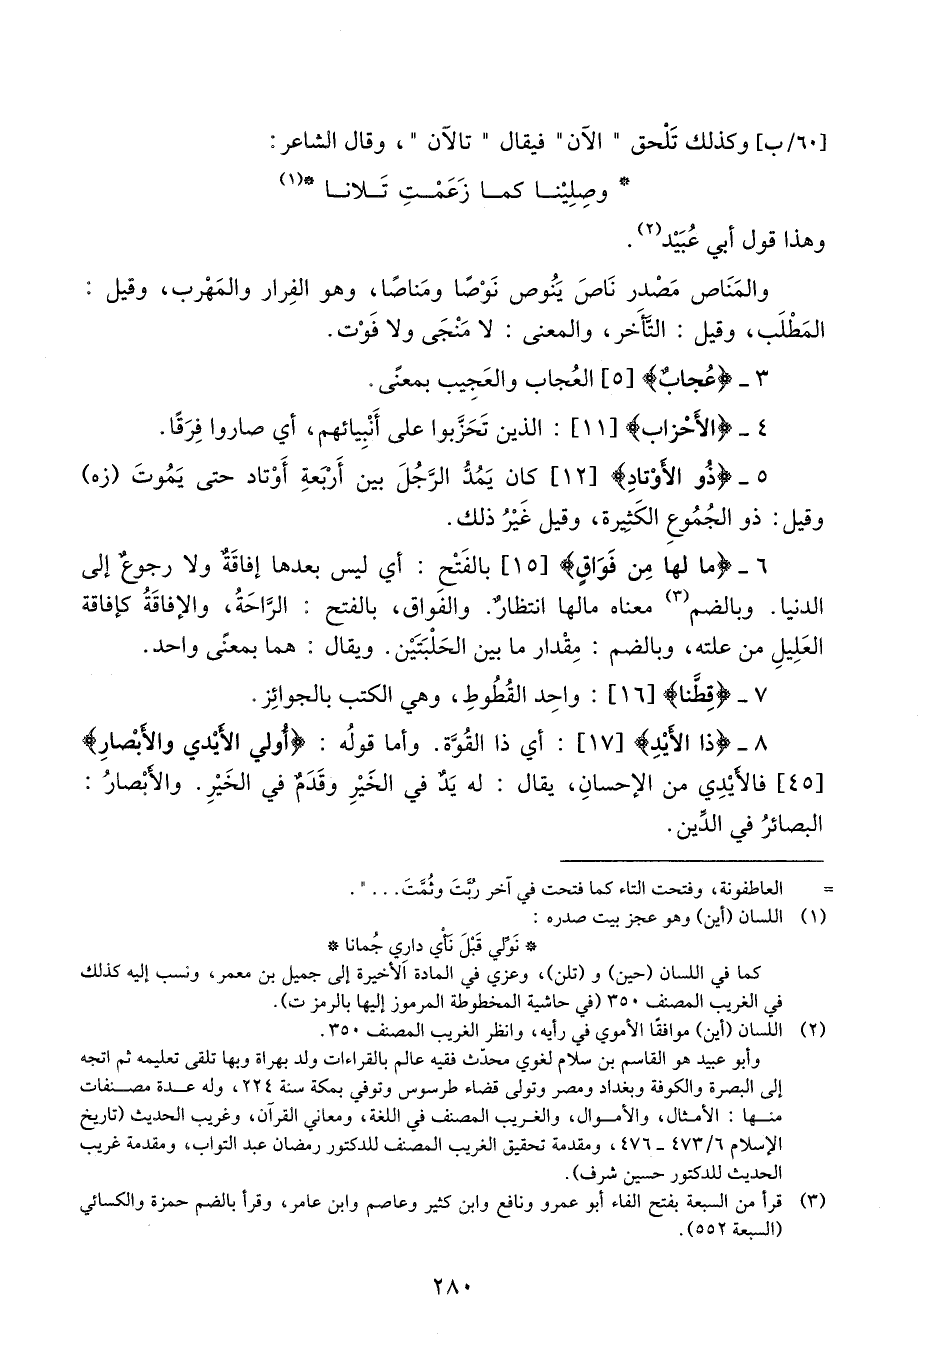 [٦٠/ب] وكذلك تَلْحق " الآن" فيقال " تالآن " ، وقال الشاعر :
* وصِلِيْنــا كمــا زَعَمْــتِ تَــلانــا *(١)
وهذا قول أبي عُبَيْد(٢).
والمَنَاص مَصْدر نَاصَ يَنُوص نَوْصًا ومَناصًا، وهو الفِرار والمَهْرب، وقيل :
المَطْلَب، وقيل : التَّأَخر، والمعنى : لا مَنْجَى ولا فَوْت.
٣ ـ ﴿عُجابٌ﴾ [٥] العُجاب والعَجِيب بمعنًى.
٤ ـ ﴿الأَحْزاب﴾ [١١] : الذين تَحَزَّبوا على أَنْبِيائهم، أي صاروا فِرَقًا.
٥ ـ ﴿ذُو الأَوْتادِ﴾ [١٢] كان يَمُدُّ الرَّجُلَ بين أَرْبَعةِ أَوْتاد حتى يَمُوتَ (زه)
وقيل: ذو الجُمُوعِ الكَثِيرة، وقيل غَيْرُ ذلك.
٦ ـ ﴿ما لها مِن فَوَاقٍ﴾ [١٥] بالفَتْح : أي ليس بعدها إفاقَةٌ ولا رجوعٌ إلى
الدنيا. وبالضم(٣) معناه مالها انتظارٌ. والفَواق، بالفتح : الرَّاحَةُ، والإفاقَةُ كإفاقة
العَلِيلِ من علته، وبالضم : مِقْدار ما بين الحَلْبَتَيْن. ويقال : هما بمعنًى واحد.
٧ ـ ﴿قِطَّنا﴾ [١٦] : واحِد القُطُوطِ، وهي الكتب بالجوائِز.
٨ ـ ﴿ذا الأَيْدِ﴾ [١٧] : أي ذا القُوَّة. وأما قولُه : ﴿أُولي الأَيْدي والأَبْصارِ﴾
[٤٥] فالأَيْدِي من الإحسانِ، يقال : له يَدٌ في الخَيْرِ وقَدَمٌ في الخَيْرِ. والأَبْصارُ :
البصائرُ في الدِّين.
= العاطفونة، وفتحت التاء كما فتحت في آخر رُبَّتَ وثُمَّتَ. . . ".
(١) اللسان (أين) وهو عجز بيت صدره :
* نَوِّلي قَبْلَ نَأْي داري جُمانا *
كما في اللسان (حين) و (تلن)، وعزي في المادة الأخيرة إلى جميل بن معمر، ونسب إليه كذلك
في الغريب المصنف ٣٥٠ (في حاشية المخطوطة المرموز إليها بالرمز ت).
(٢) اللسان (أين) موافقًا الأموي في رأيه، وانظر الغريب المصنف ٣٥٠.
وأبو عبيد هو القاسم بن سلام لغوي محدّث فقيه عالم بالقراءات ولد بهراة وبها تلقى تعليمه ثم اتجه
إلى البصرة والكوفة وبغداد ومصر وتولى قضاء طرسوس وتوفي بمكة سنة ٢٢٤، وله عــدة مصــنفات
منــها : الأمـثال، والأمــوال، والغـريب المصنف في اللغة، ومعاني القرآن، وغريب الحديث (تاريخ
الإسلام ٦/ ٤٧٣ ـ ٤٧٦، ومقدمة تحقيق الغريب المصنف للدكتور رمضان عبد التواب، ومقدمة غريب
الحديث للدكتور حسين شرف).
(٣) قرأ من السبعة بفتح الفاء أبو عمرو ونافع وابن كثير وعاصم وابن عامر، وقرأ بالضم حمزة والكسائي
(السبعة ٥٥٢).
٢٨٠